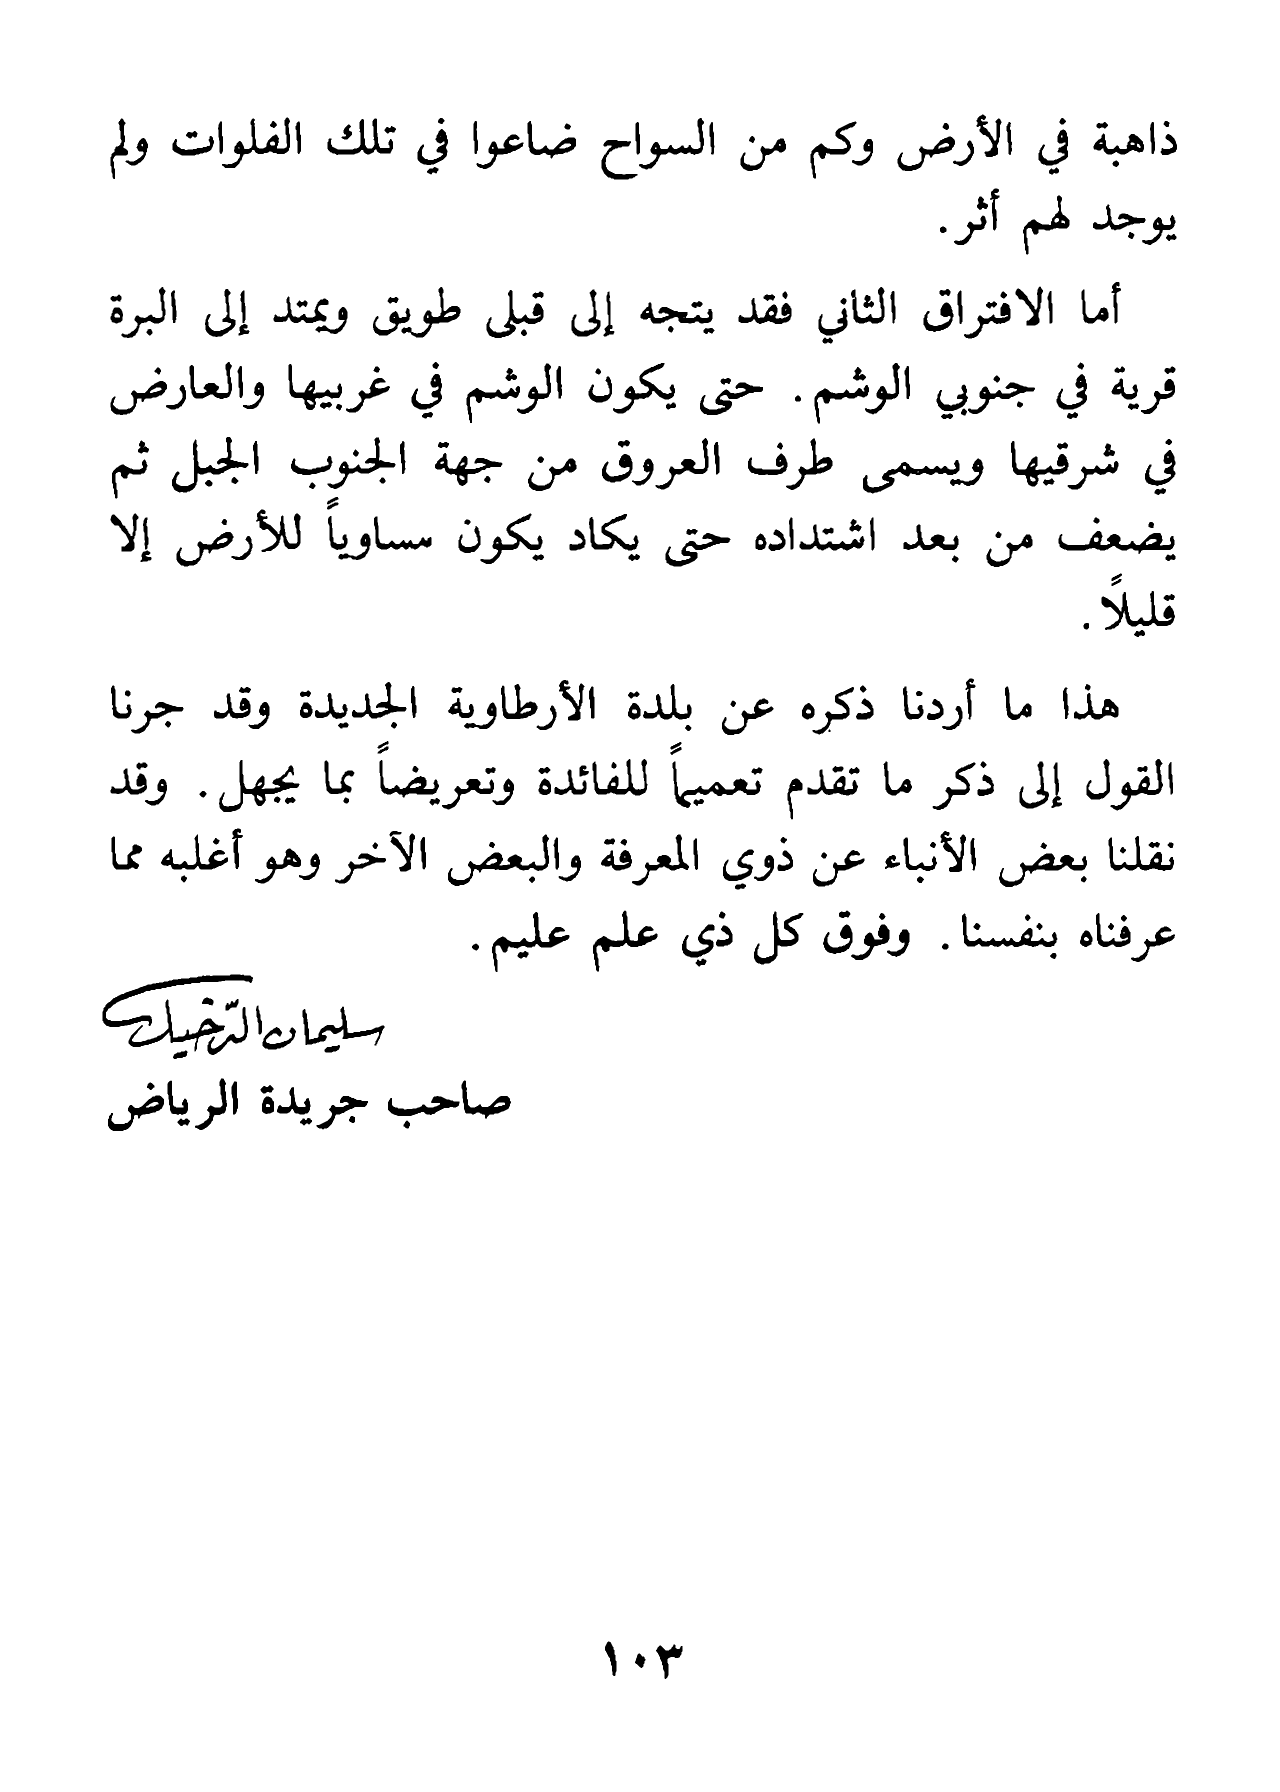 ذاهبة في الأرض وكم من السواح ضاعوا في تلك الفلوات ولم
يوجد لهم أثر.
أما الافتراق الثاني فقد يتجه إلى قبلى طويق ويمتد إلى البرة
قرية في جنوبي الوشم. حتى يكون الوشم في غربيها والعارض
في شرقيها ويسمى طرف العروق من جهة الجنوب الجبل ثم
يضعف من بعد اشتداده حتى يكاد يكون مساوياً للأرض إلا
قليلاً.
هذا ما أردنا ذكره عن بلدة الأرطاوية الجديدة وقد جرنا
القول إلى ذكر ما تقدم تعميماً للفائدة وتعريضاً بما يجهل. وقد
نقلنا بعض الأنباء عن ذوي المعرفة والبعض الآخر وهو أغلبه مما
عرفناه بنفسنا. وفوق كل ذي علم عليم.
سليمان الدّخيل
صاحب جريدة الرياض
١٠٣